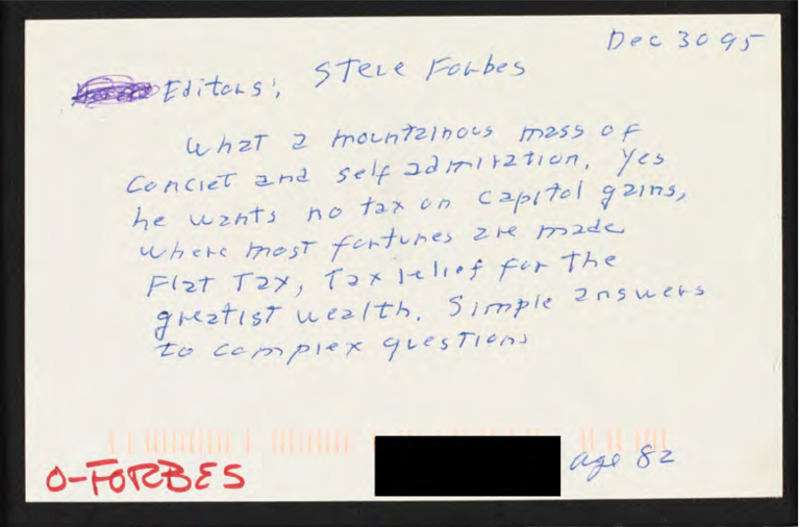 Dec 30 95
Editors; Steve Forbes
What a mountainous mass of
Conciet and self admiration. Yes
he wants no tax on capitol gains,
where most fortunes are made
Flat Tax, Tax relief for the
greatist wealth. Simple answers
to complex questions
age 82
O-FORBES